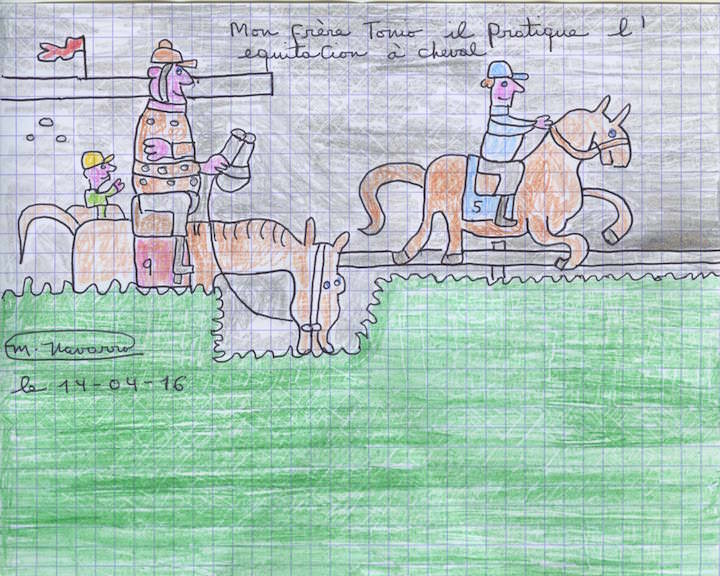 Mon frère Tonio il pratique l'
equitacion à cheval
5
9
M. Navarro
le 14-04-16